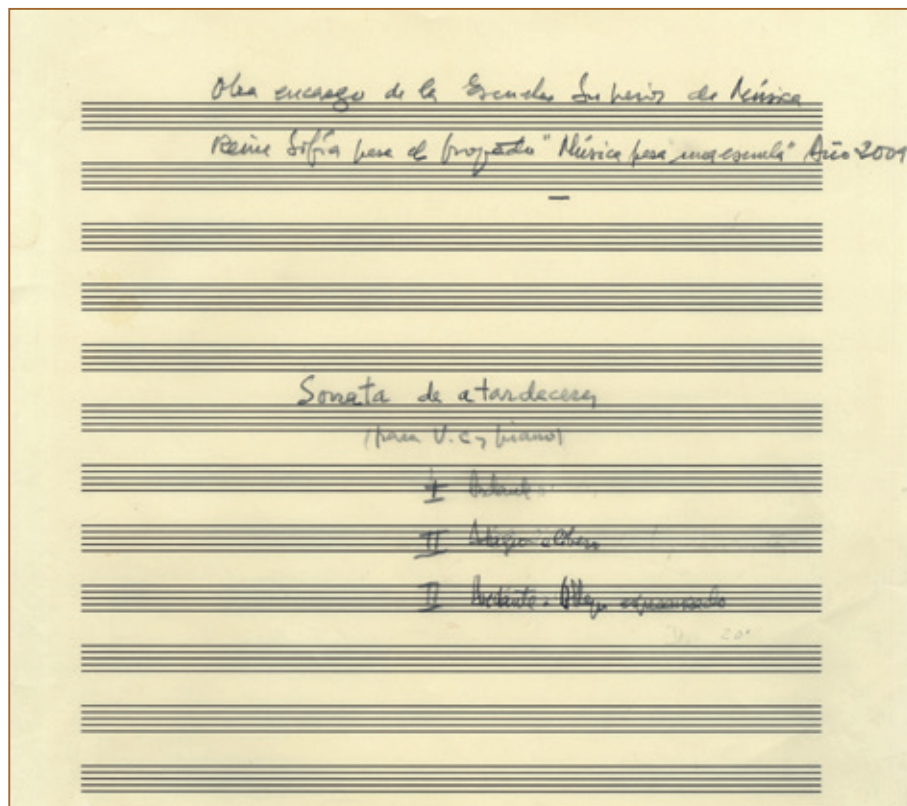 Obra encargo de la Escuela Superior de Música
Reina Sofía para el proyecto "Música para una escuela" Año 2009
Sonata de atardeceres
(para V.c y piano)
I
II Adagio
II Andante. Allegro
20'